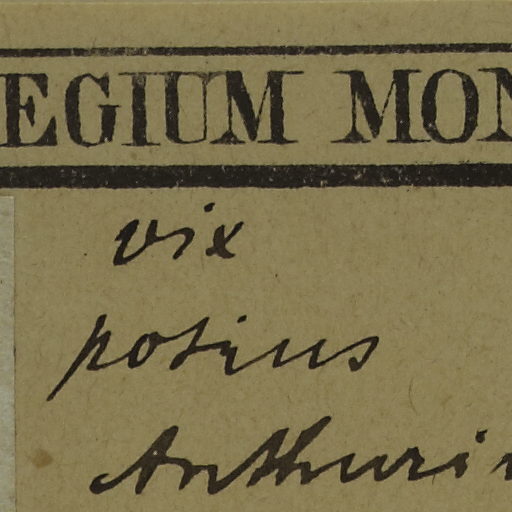 EGIUM MON
vix
potius
Anthuri